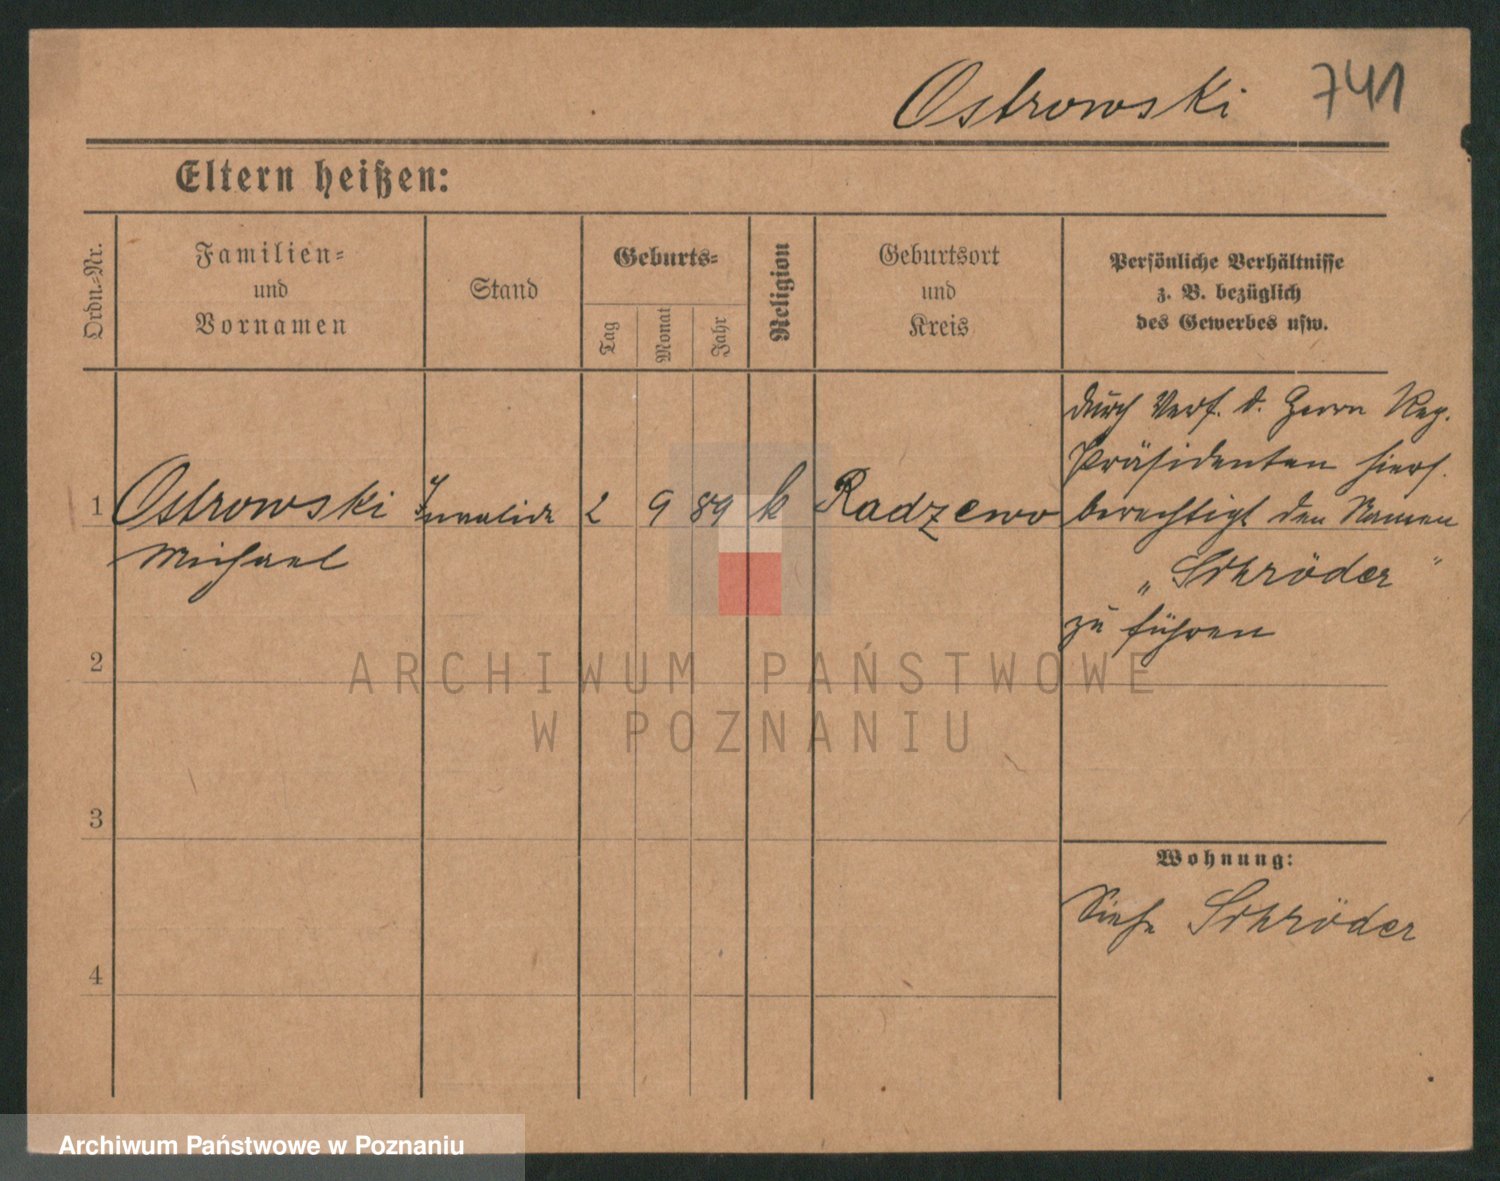 Ostrowski 741
Eltern heißen:
Ordn.-Nr.
Familien-
und
Vornamen
Stand
Geburts-
Tag
Monat
Jahr
Religion
Geburtsort
und
Kreis
Persönliche Verhältnisse
z. B. bezüglich
des Gewerbes usw.
1 Ostrowski Invalide 2 9 89 k Radzewo
Michael
durch Verf. d. Herrn Reg.
Präsidenten hiers.
berechtigt den Namen
„Schröder"
zu führen
2
3
4
Wohnung:
Siehe Schröder
ARCHIWUM PAŃSTWOWE
W POZNANIU
Archiwum Państwowe w Poznaniu